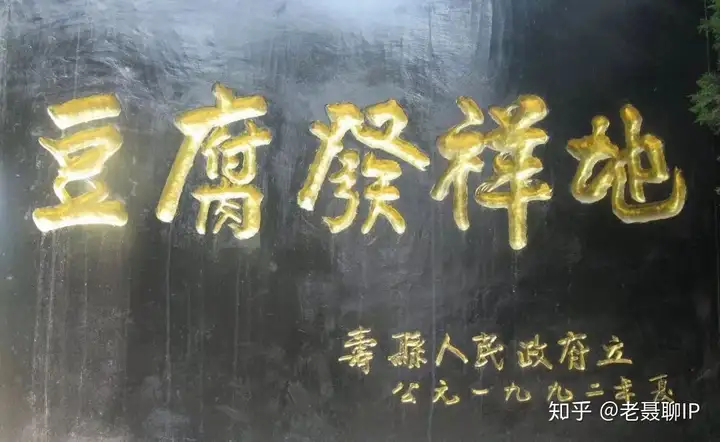 豆腐發祥地
壽縣人民政府立
公元一九九二年夏
知乎 @老聂聊IP